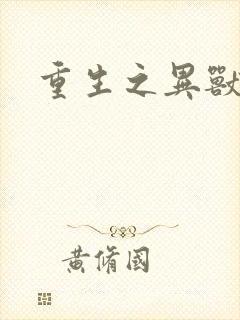 重生之異獸
黃脩國